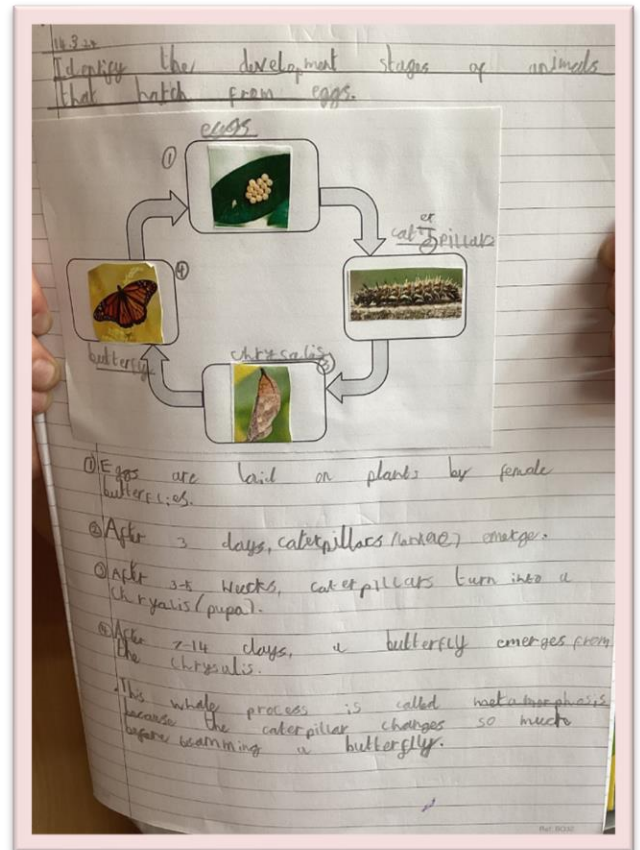 14.3.24
Identify the development stages of animals
that hatch from eggs.
eggs
①
er
catTpillars
④
butterfly
chrysalis
③
① Eggs are laid on plants by female
butterflies.
② After 3 days, caterpillars (larvae) emerge.
③ After 3-5 wucks, caterpillars turn into a
chryalis (pupa).
④ After 7-14 days, a butterfly emerges from
the chrysalis.
This whole process is called metamorphosis
because the caterpillar changes so much
before a butterfly.